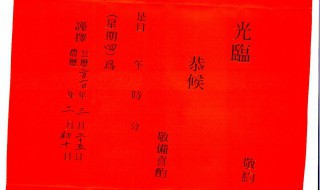 謹擇
公曆二〇一〇年三月二十五日
農曆 年二月初十日
(星期四)為
是日 午 時 分
敬備喜酌
恭候
光臨
敬約